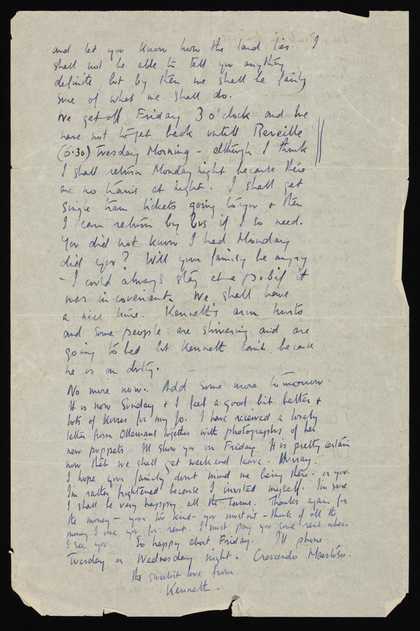 and let you know how the land lies. I
shall not be able to tell you anything
definite but by then we shall be fairly
sure of what we shall do.
We get off Friday 3 o'clock and we
have not to get back untill Reveille
(6.30) Tuesday Morning - although I think
I shall return Monday night because there
are no trains at night. I shall get
single train tickets going to you & then
I can return by bus if I so need.
You did not know I had Monday
did you? Will your family be angry
- I could always stay at a pub if it
was inconvenient. We shall have
a nice time. Kenneth's arm hurts
and some people are shivering and are
going to bed but Kenneth can't because
he is on duty.
No more now. Add some more tomorrow
It is now Sunday & I feel a good bit better &
lots of kisses for my Jo. I have received a lovely
letter from together with photographs of her
new puppets. I'll show you on Friday. It is pretty certain
now that we shall get weekend leave. Hurray.
I hope your family don't mind me being there - or you
I'm rather frightened because I invited myself. I'm sure
I shall be very happy all the same. Thanks again for
the money - you are kind - you mustn't - think of all the
money I owe you for rent. I must pay you some rent when
I see you. So happy about Friday. I'll phone
Tuesday or Wednesday night. Crescendo
the sweetest love from
Kenneth.